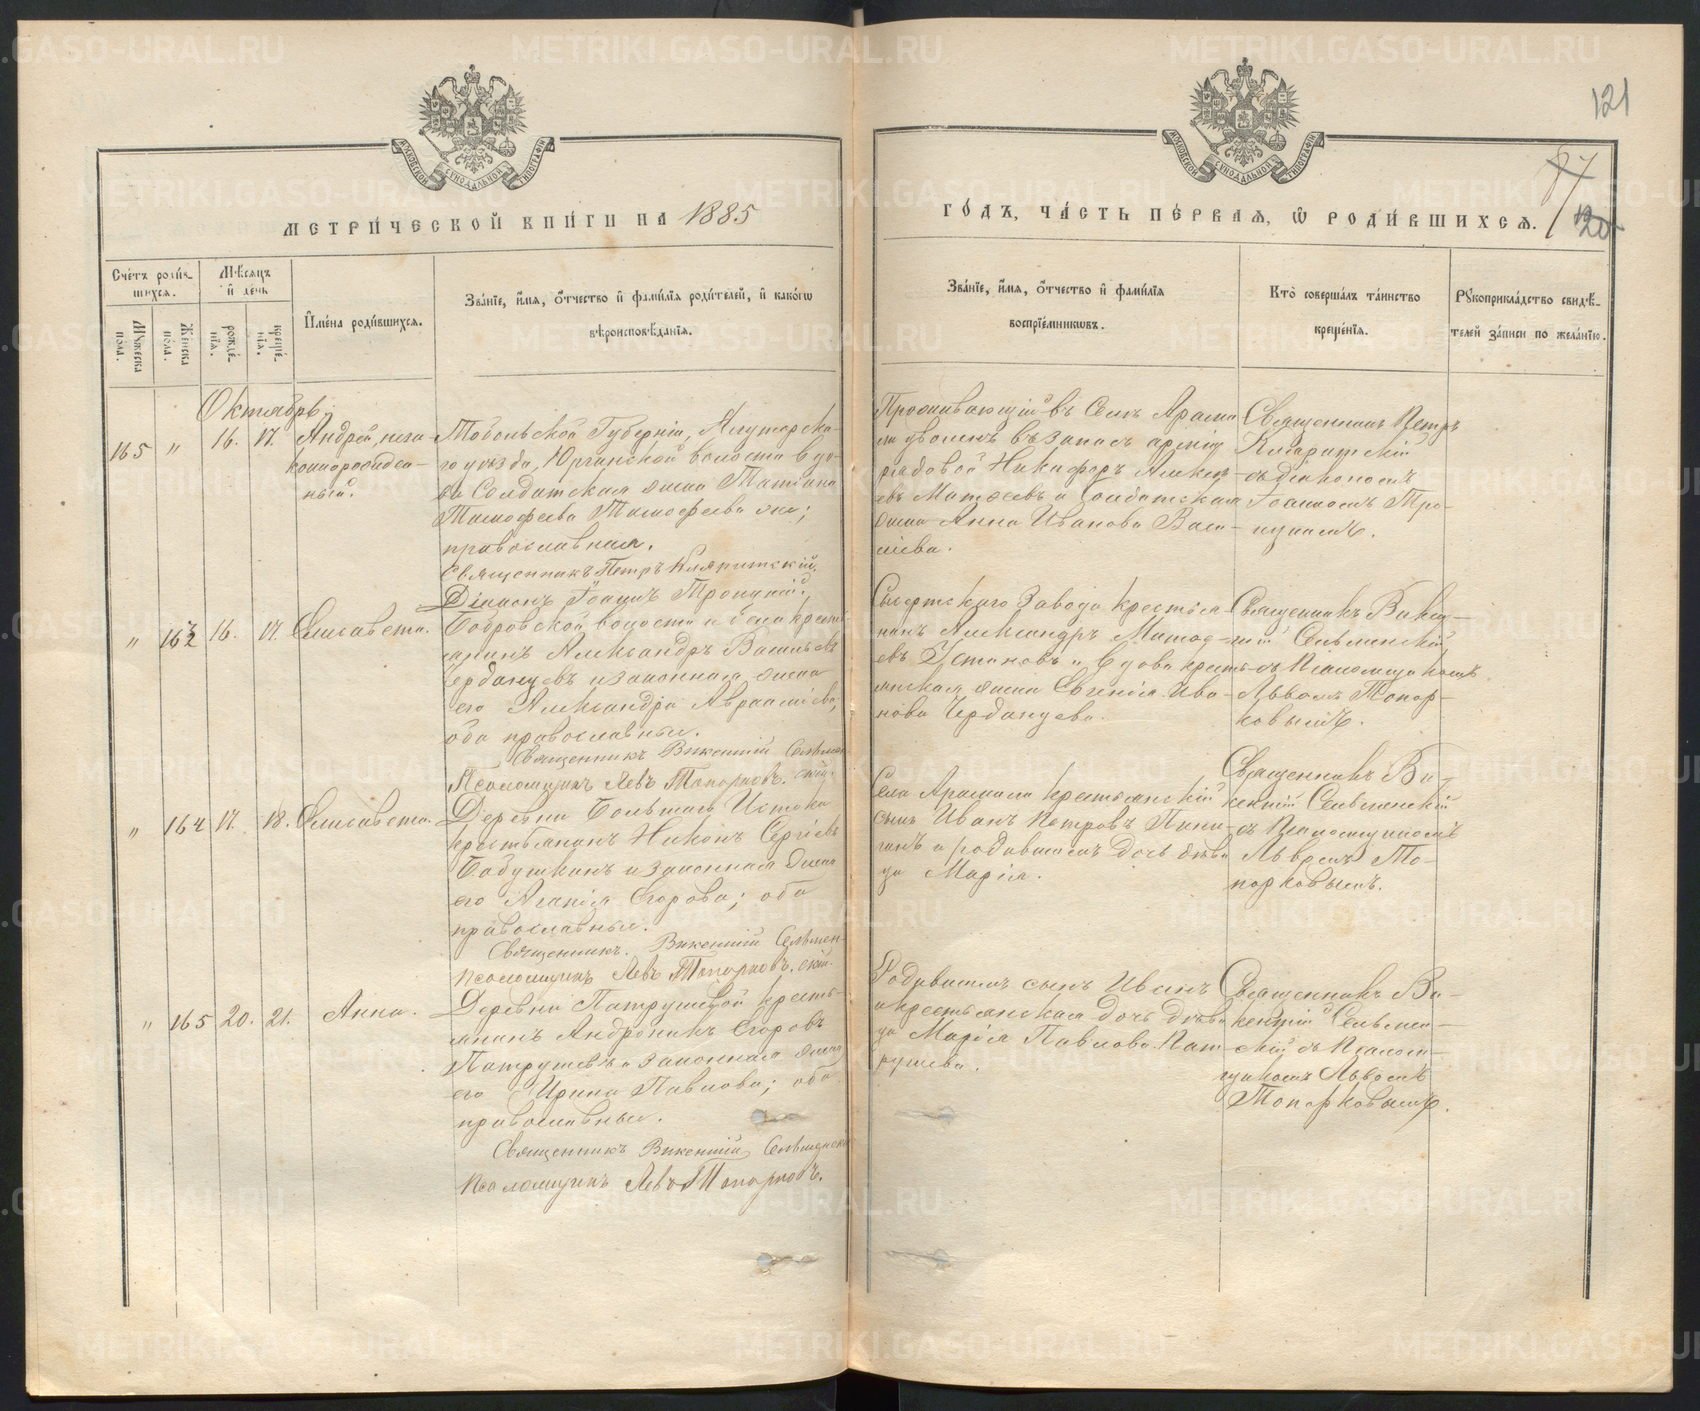 МЕТРИ́ЧЕСКОЙ КНИ́ГИ НА 1885
ГО́ДЪ, ЧА́СТЬ ПЕ́РВАЯ, Ѡ РОДИ́ВШИХСЯ.
121
Счетъ роди́в-
шихся.
Мѣсяцъ
и день
Мужеска
пола.
Женска
пола.
рожде́-
нїя.
креще́-
нїя.
Имена роди́вшихся.
Зва́нїе, имя, о́тчество и фами́лїя роди́телей, и како́гѡ
вѣроисповѣ́данїя.
Зва́нїе, имя, о́тчество и фами́лїя
воспрїе́мниковъ.
Кто̀ соверша́лъ та́инство
креще́нїя.
Рꙋкоприкла́дство свидѣ́-
телей за́писи по жела́нїю.
Октябрь.
165 " 16. 17. Андрей, неза-
коннорожден-
ный.
Тобольской Губерніи, Ялуторска-
го уѣзда, Юргинской волости вдо-
ва Солдатская жена Татіана
Тимофеева Тимофеева же;
православная.
Священникъ Петръ
Діаконъ Іоаннъ Троицкій.
Проживающій въ Селѣ Арами-
ли уволенъ въ запасъ арміи
рядовой Никифоръ Алексѣ-
евъ Матвеевъ и Солдатская
жена Анна Иванова Васи-
ліева.
Священникъ Петръ
съ діакономъ
Іоанномъ Тро-
ицкимъ.
" 16. 17. Елисавета.
Бобровской волости и села кресть-
янинъ Александръ Васильевъ
Чердынцевъ и законная жена
его Александра Авраамiева,
оба православные.
Священникъ Викентій Сельмен-
скій.
Псаломщикъ Левъ Топорковъ.
Сысертскаго Завода крестья-
нинъ Александръ
евъ Устиновъ и вдова кресть-
янская жена Евгенія Ива-
нова Чердынцева.
Священникъ Викен-
тій Сельменскій
съ Псаломщикомъ
Львомъ Топор-
ковымъ.
" 164 17. 18. Елисавета.
Деревни Большаго Истока
крестьянинъ Никонъ Сергіевъ
Бабушкинъ и законная жена
его Агапія Егорова; оба
православные.
Священникъ Викентій Сельмен-
скій.
Псаломщикъ Левъ Топорковъ.
Села Арамили крестьянскій
сынъ Иванъ Петровъ
и родившемъ дочь дѣви-
ца Марія.
Священникъ Ви-
кентій Сельменскій
съ Псаломщикомъ
Львомъ То-
порковымъ.
" 165 20. 21. Анна.
Деревни Патрушевой кресть-
янинъ Андроникъ Егоровъ
Патрушевъ и законная жена
его Ирина Павлова; оба
православные.
Священникъ Викентій Сельменскій
Псаломщикъ Левъ Топорковъ.
Родившемъ сынъ Иванъ
и крестьянская дочь дѣви-
ца Марія Павлова Пат-
рушева.
Священникъ Ви-
кентій Сельмен-
скій съ Псалом-
щикомъ Львомъ
Топорковымъ.
METRIKI.GASO-URAL.RU